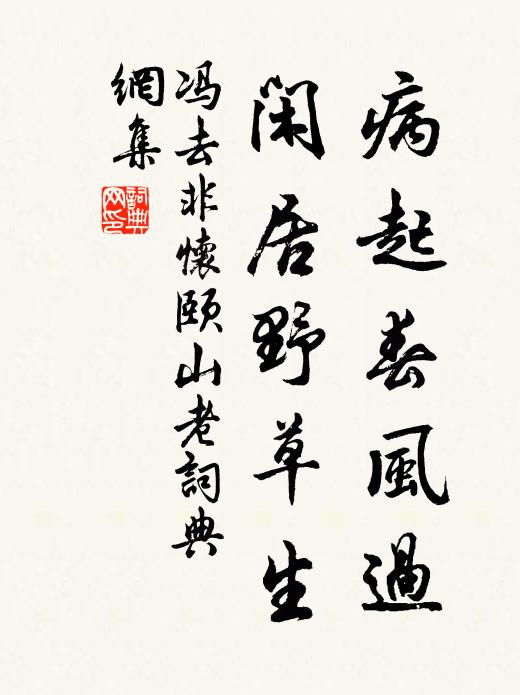 病起春風過
閑居野草生
冯去非懷頤山老詞典
網集
詞典
网印